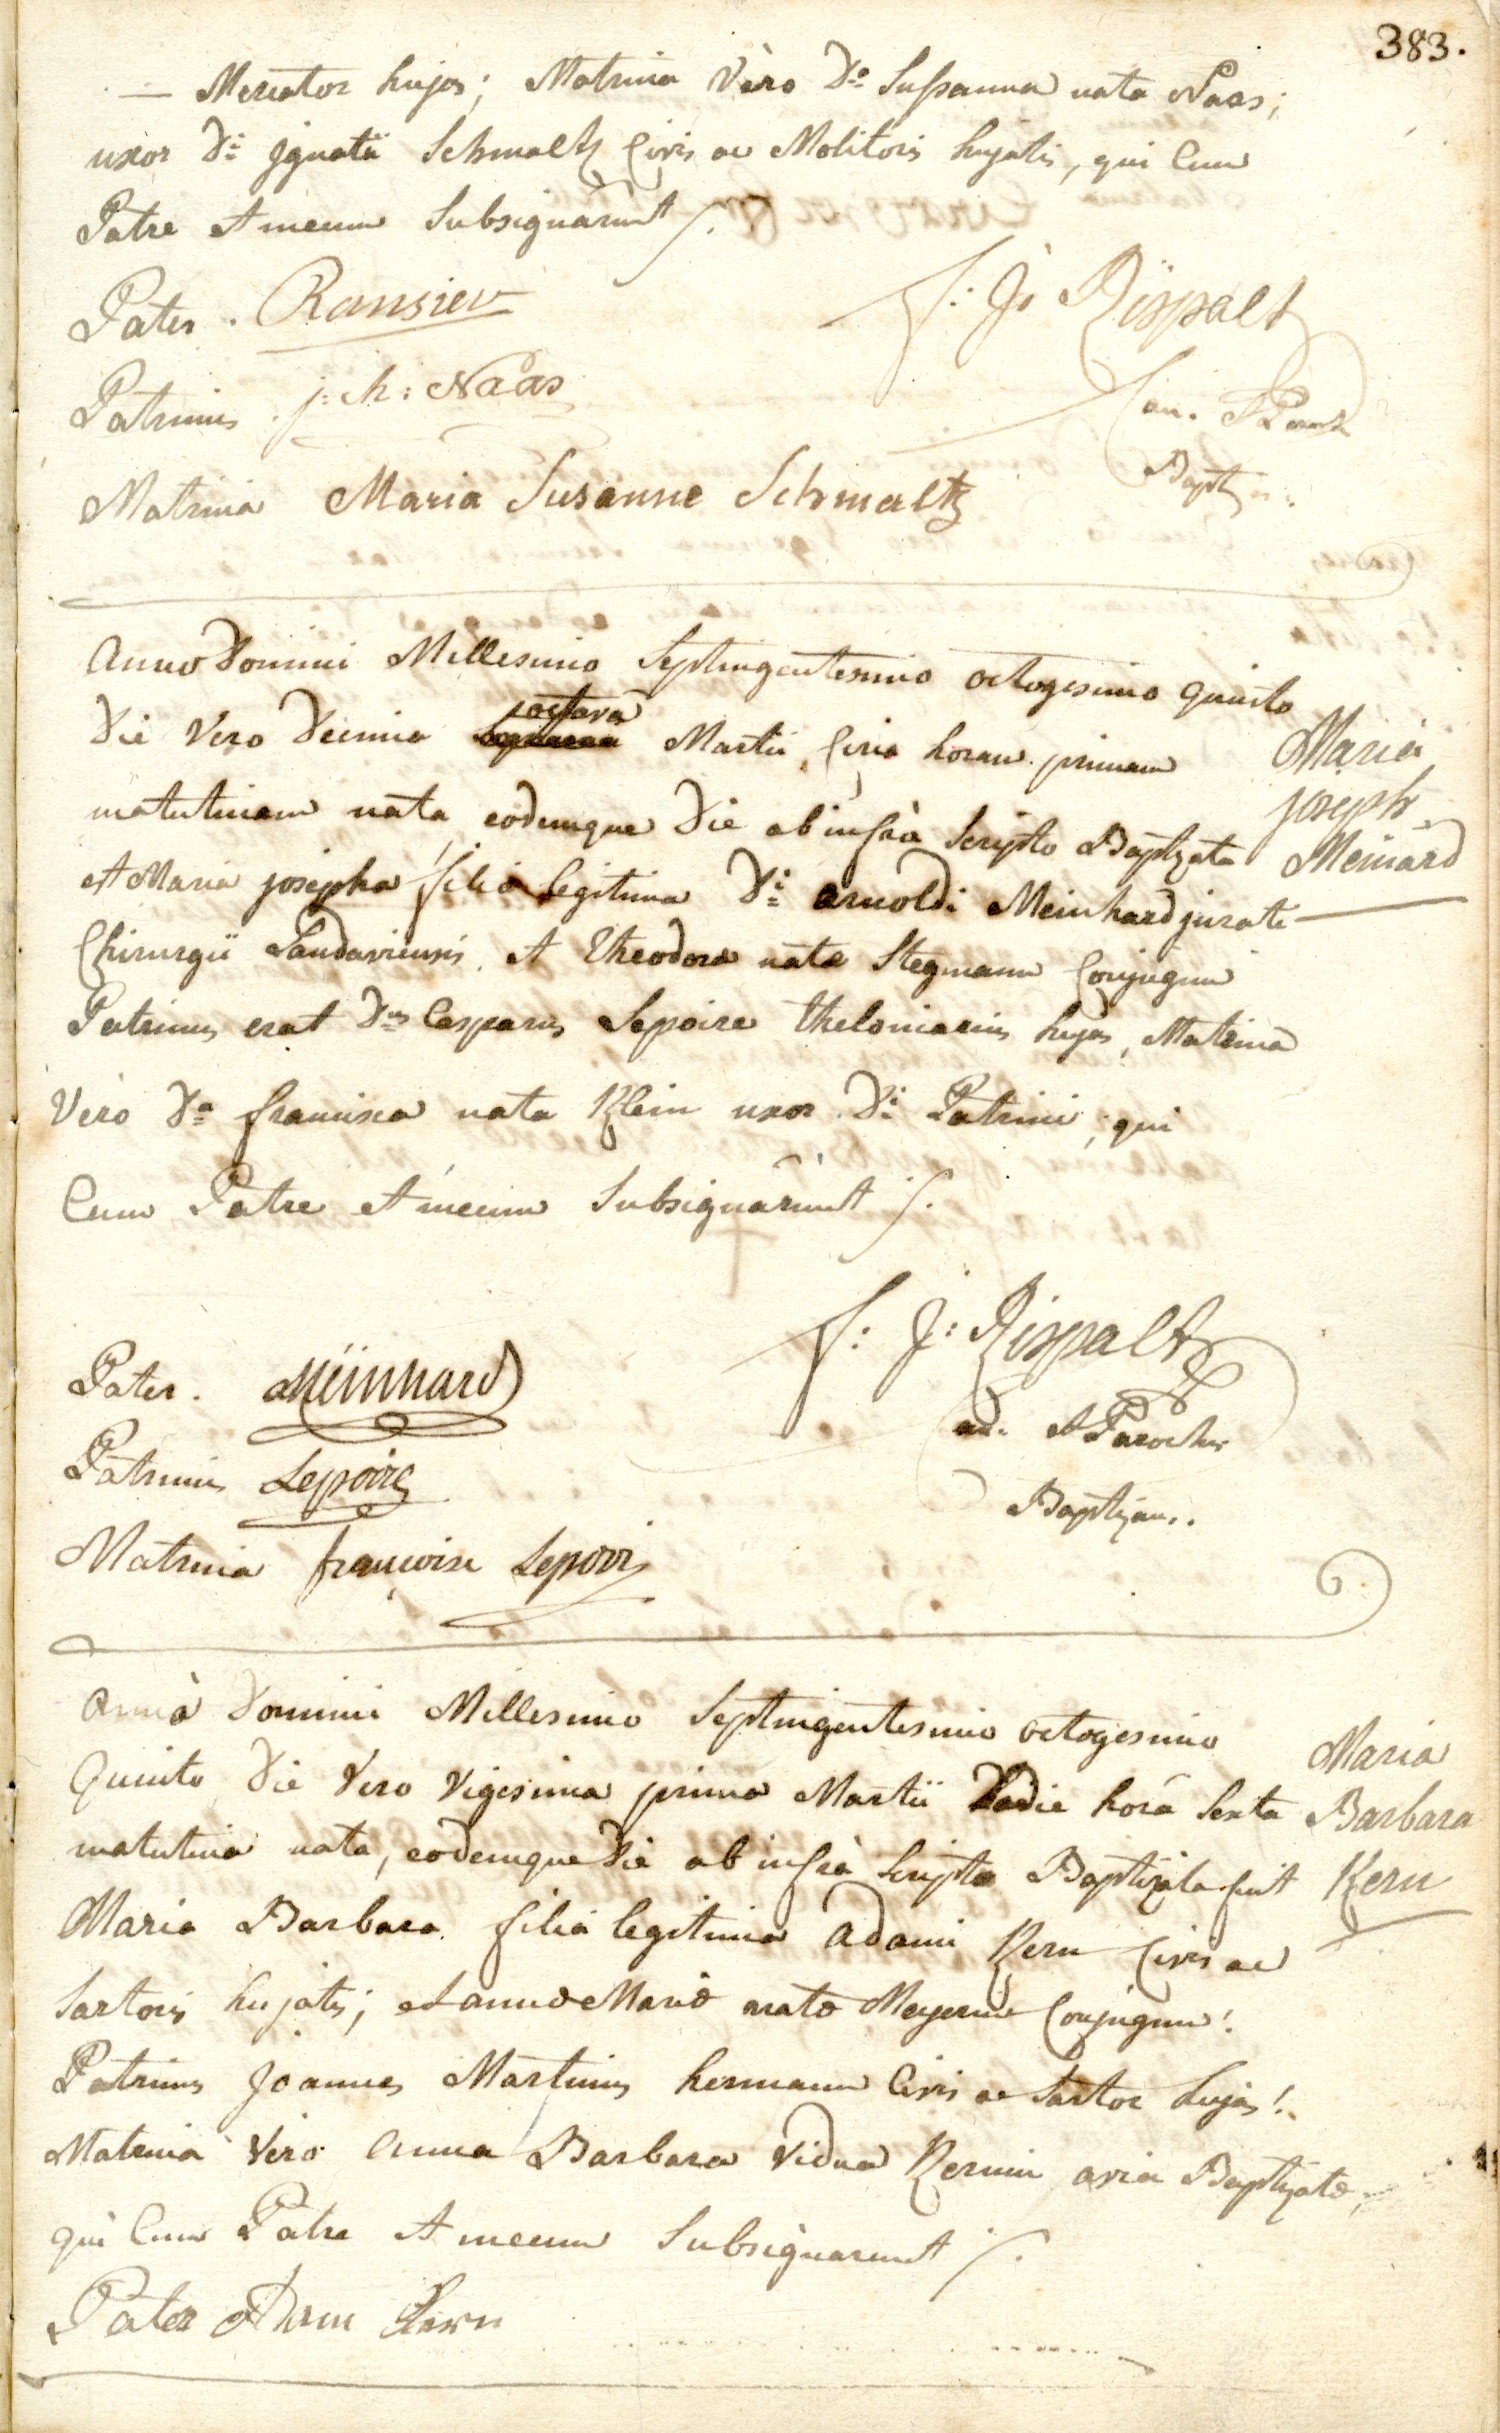 383.
— Mercator hujas; Matrina Vèro Da Sussanna nata Naas;
uxor Di Jgnatii Schmaltz Civis ac Molitoris hujatis, qui Cum
Patre et mecum Subsignârunt /.
Pater. Ransier
F: J: Rispalt
Patrinus. j: ch: Naas
Can. et Paroch
Matrina Maria Susanne Schmaltz
Baptizans.
Anno Domini Millesimo Septingentesimo octogesimo quinto
octava
Die Vero Decima Martii Circa horam primam
Maria
matutinam nata eodemque Die ab infrà Scripto Baptizata
Joseph
et Maria josepha filia legitima Di arnoldi Meinhard jurati
Meinard
Chirurgii Landaviensis et Theodoræ natæ Stegmann Conjugum
Patrinus erat Dus Casparus Lepoire theloniarius hujas, Matrina
Vèro Da francisca nata Klein uxor Di Patrini, qui
Cum Patre et mecum Subsignârunt /.
F: J: Rispalt
Pater. Meinhard
can. et Parochus
Patrinus Lepoire
Baptizans.
Matrina francoise Lepoir
Anno Domini Millesimo Septingentesimo octogesimo
Maria
Quinto Die Vero Vigesima prima Martii hodie horâ Sexta
Barbara
matutina nata, eodemque Die ab infrà Scripto Baptizata fuit
Kern
Maria Barbara filia legitima adami Kern Civis ac
Sartoris hujatis; et annæ Mariæ natæ Meyerin Conjugum!
Patrinus Joannes Martinus hermann Civis ac Sartor hujas!
Matrina Vero Anna Barbara Vidua Kernin avia Baptizatæ,
qui Cum Patre et mecum Subsignarunt /.
Pater Adam Kern